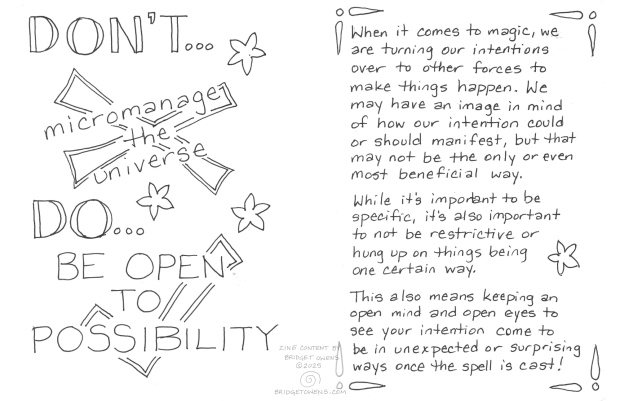 DON'T...
micromanage
the
universe
DO...
BE OPEN
TO
POSSIBILITY
When it comes to magic, we
are turning our intentions
over to other forces to
make things happen. We
may have an image in mind
of how our intention could
or should manifest, but that
may not be the only or even
most beneficial way.
While it's important to be
specific, it's also important
to not be restrictive or
hung up on things being
one certain way.
This also means keeping an
open mind and open eyes to
see your intention come to
be in unexpected or surprising
ways once the spell is cast!
ZINE CONTENT BY
BRIDGET OWENS
©2025
BRIDGETOWENS.COM